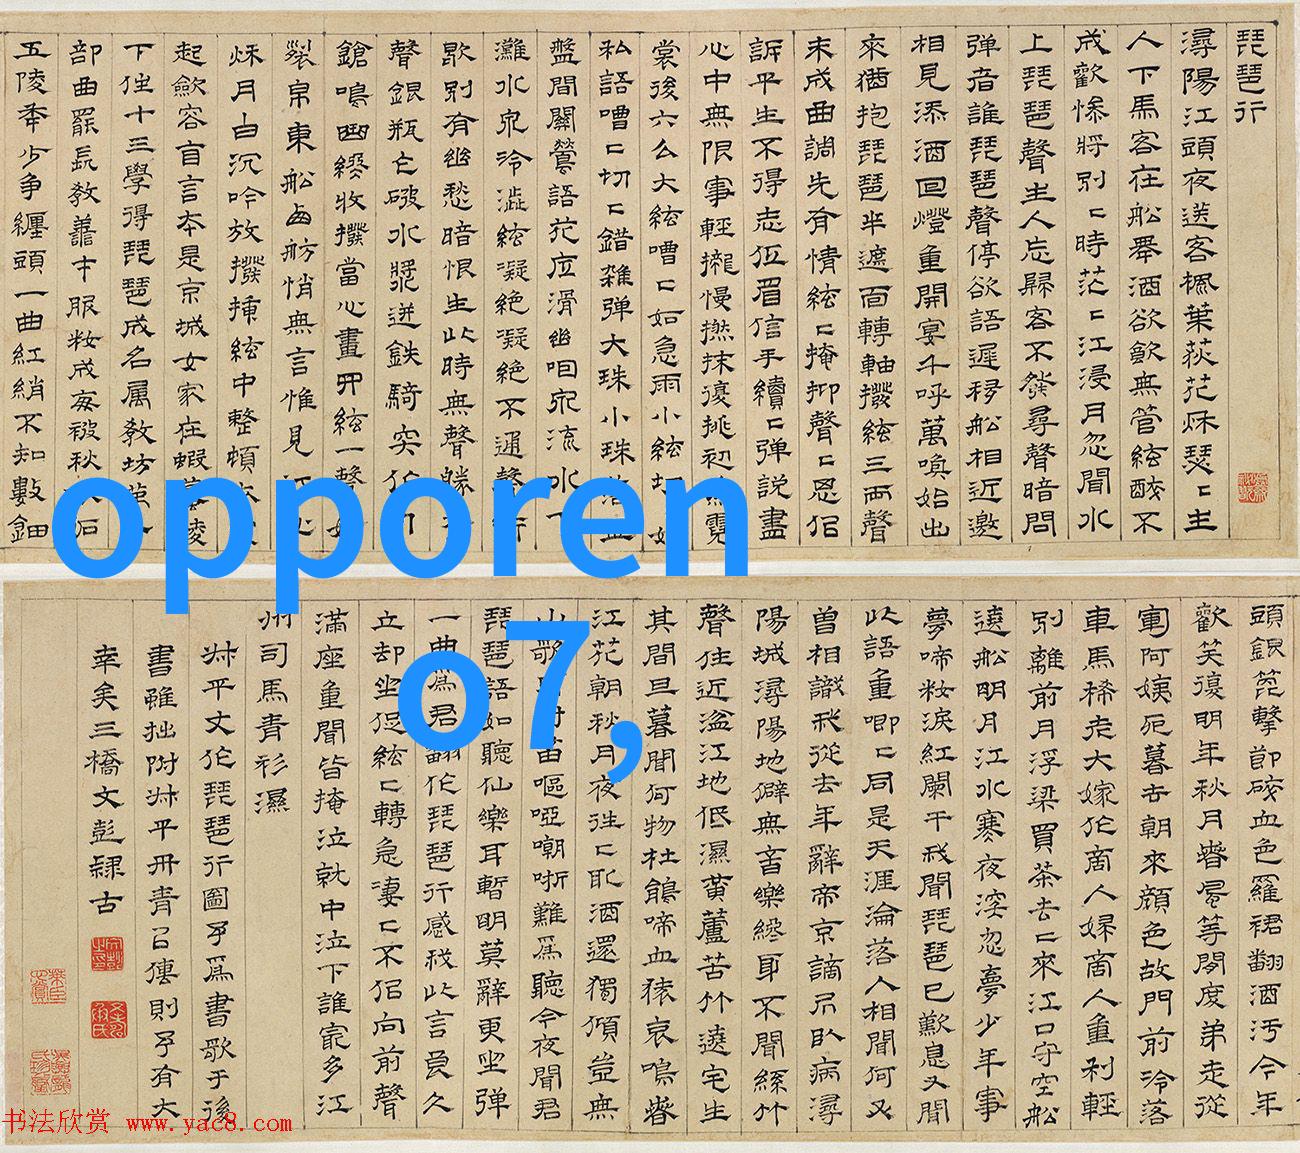 琵琶行
潯陽江頭夜送客楓葉荻花秋瑟〻主
人下馬客在船舉酒欲飲無管絃醉不
成歡慘將別〻時茫〻江浸月忽聞水
上琵琶聲主人忘歸客不發尋聲暗問
彈者誰琵琶聲停欲語遲移船相近邀
相見添酒回燈重開宴千呼萬喚始出
來猶抱琵琶半遮面轉軸撥絃三兩聲
未成曲調先有情絃〻掩抑聲〻思似
訴平生不得志低眉信手續〻彈說盡
心中無限事輕攏慢撚抹復挑初為霓
裳後六么大絃嘈〻如急雨小絃切如
私語嘈〻切〻錯雜彈大珠小珠落玉
盤間關鶯語花底滑幽咽泉流水下
灘水泉冷澁絃凝絕凝絕不通聲暫
歇別有幽愁暗恨生此時無聲勝有
聲銀瓶乍破水漿迸鉄騎突出刀
鎗鳴曲終收撥當心畫四絃一聲如
裂帛東船西舫悄無言惟見江心
秋月白沉吟放撥揷絃中整頓衣
起歛容自言本是京城女家在蝦蟇陵
下住十三學得琵琶成名属教坊第一
部曲罷長教善才服妝成每被秋
五陵年少爭纏頭一曲紅綃不知數鈿
opporen
o7,
頭銀篦擊節破血色羅裙翻酒污今年
歡笑復明年秋月春風等閒度弟走從
軍阿姨死暮去朝來顔色故門前冷落
車馬稀老大嫁作商人婦商人重利輕
別離前月浮梁買茶去〻來江口守空船
遶船明月江水寒夜深忽夢少年事
夢啼妝淚紅闌干我聞琵琶已歎息又聞
此語重唧〻同是天涯淪落人相聞何必
曾相識我從去年辭帝京謫居臥病潯
陽城潯陽地僻無音樂終歲不聞絲竹
聲住近湓江地低濕黄蘆苦竹遶宅生
其間旦暮聞何物杜鵑啼血猿哀鳴春
江花朝秋月夜往〻取酒還獨傾豈無
山歌村笛嘔啞嘲哳難為聽今夜聞君
琵琶語如聽仙樂耳暫明莫辭更坐彈
一曲為君翻作琵琶行感我此言良久
立却坐促絃〻轉急淒〻不似向前聲
滿座重聞皆掩泣就中泣下誰寂多江
州司馬青衫濕
叔平丈作琵琶行圖予為書歌于後
書雖拙附叔平丹青以傳則予有大
幸矣三橋文彭隸古
书法欣赏 www.yac8.com